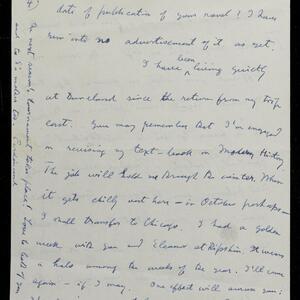 date of publication of your novel! I have
seen no advertisement of it as yet.
been
I have living quietly
at Duneland since the return from my trip
east. You may remember that I'm engaged
in revising my text-book on Modern History
The job will hold me through the winter. When
it gets chilly out here – in October perhaps –
I shall transfer to Chicago. I had a golden
week with you and Eleanor at Ripshin. It wears
a halo among the weeks of the year. I'll come
again – if I may. One effect will amuse you: